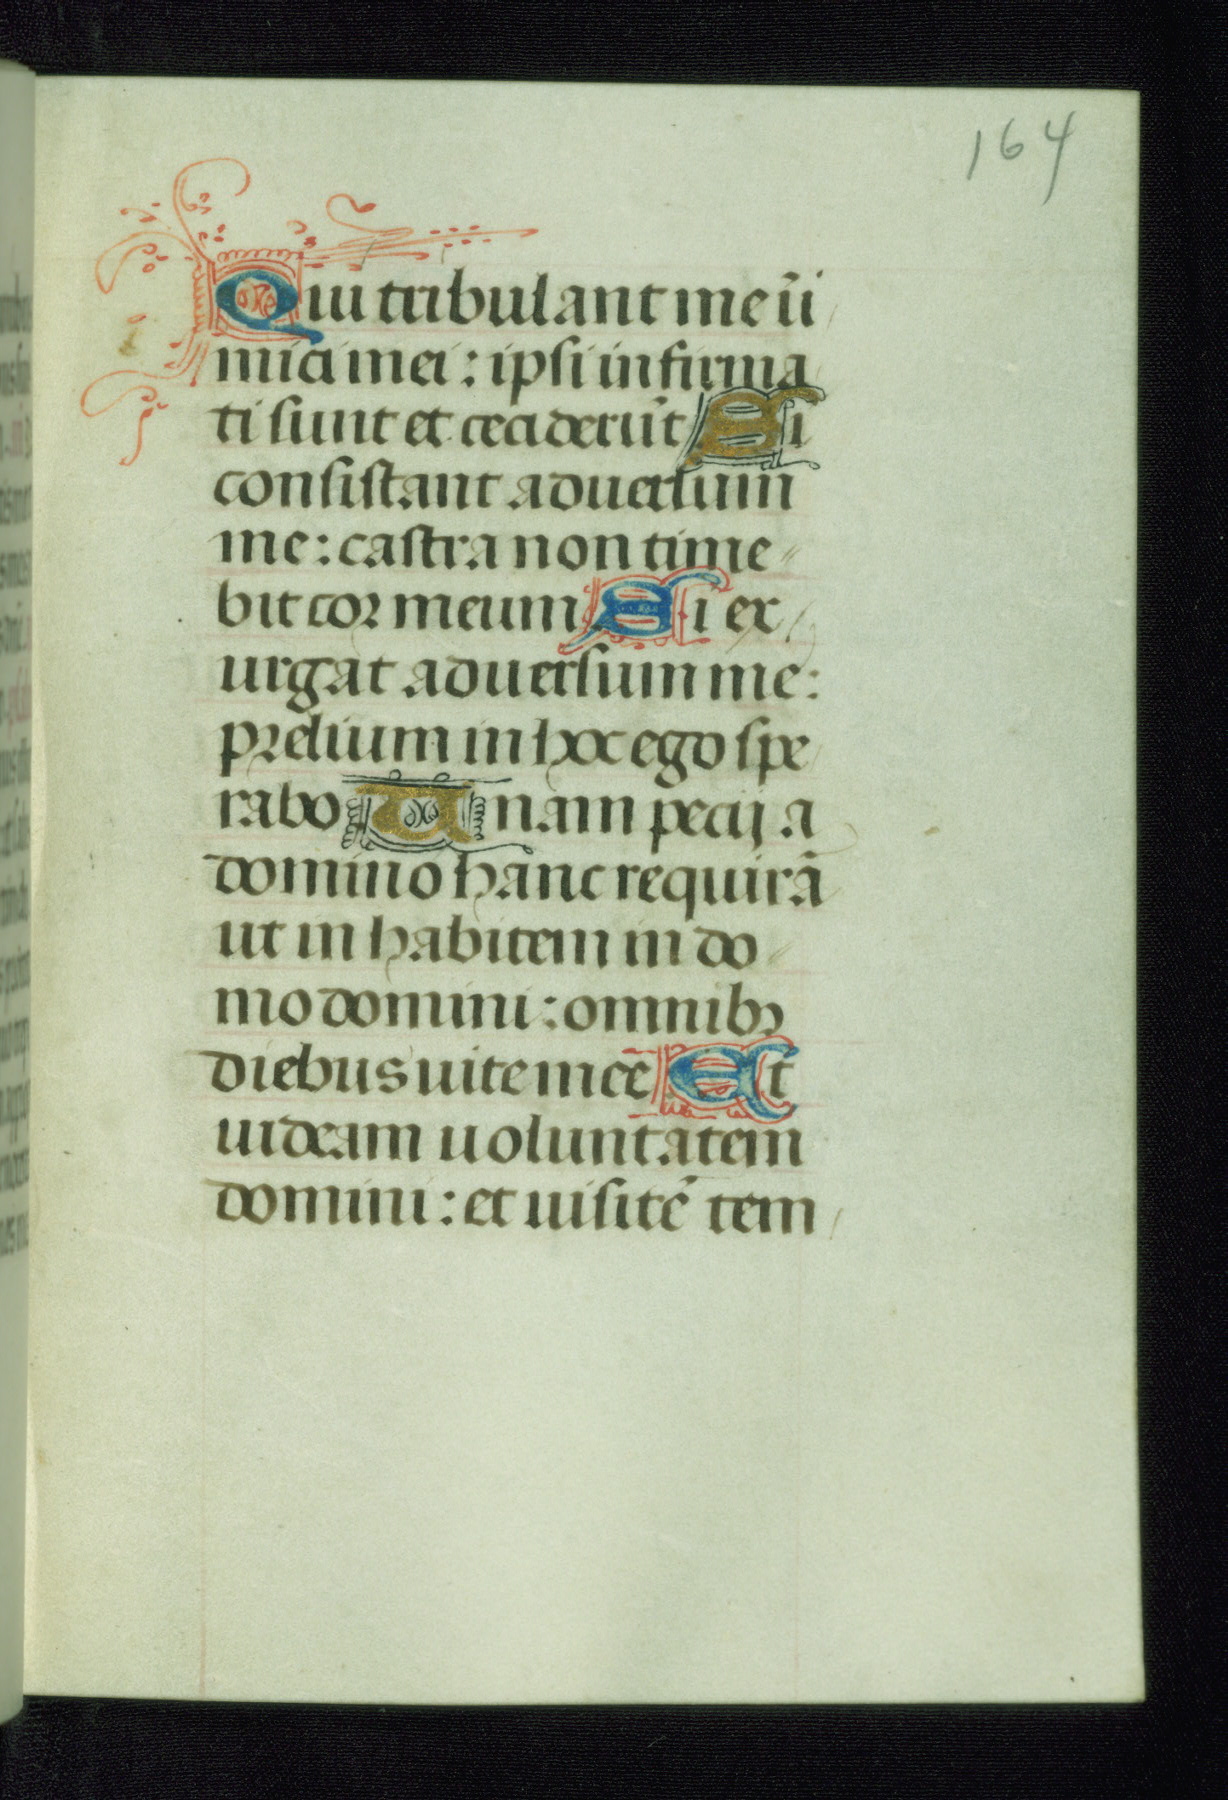 164
Qui tribulant me ĩi
mici mei : ipsi infirma
ti sunt et ceciderũt Si
consistant aduersum
me : castra non time
bit cor meum Si ex
urgat aduersum me :
prelium in hoc ego spe
rabo Unam pecij a
domino hanc requirã
ut in habitem in do
mo domini : omnibꝫ
diebus uite meẽ Et
uideam uoluntatem
domini : et uisitẽ tem